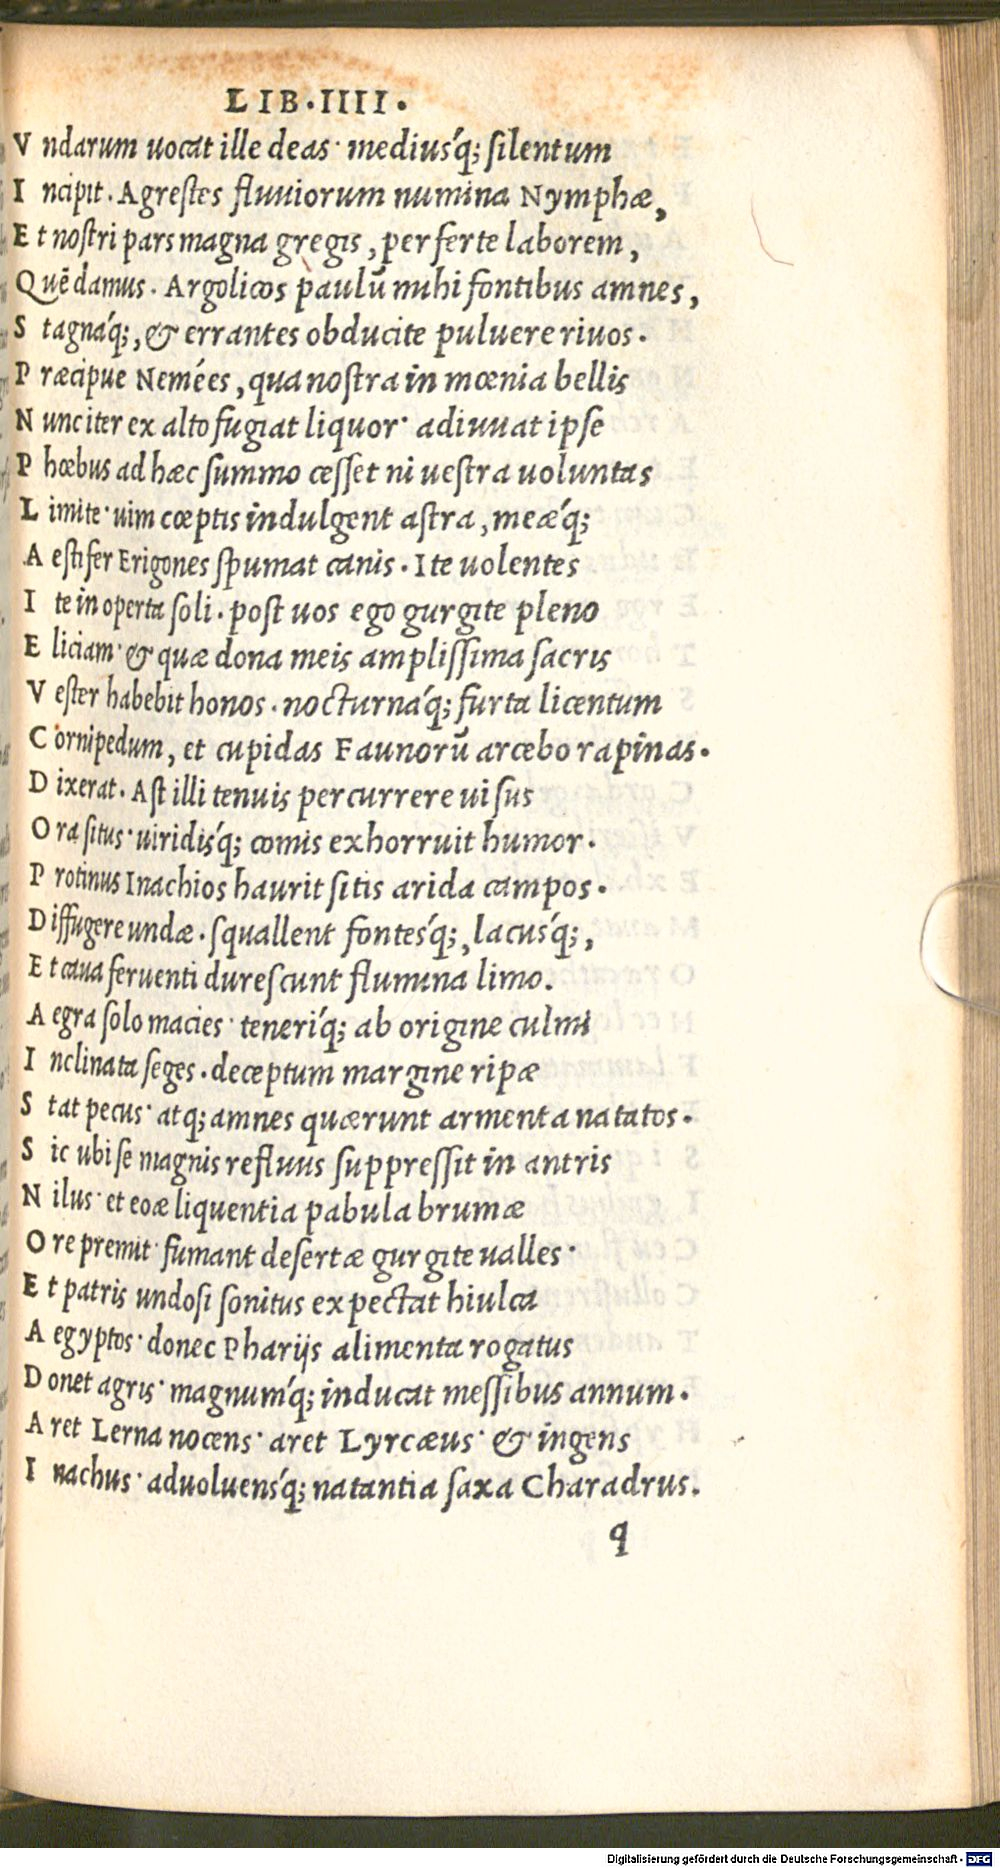 LIB.IIII.
Vndarum uocat ille deas· mediusq́; silentum
Incipit. Agrestes fluuiorum numina Nymphæ,
Et nostri pars magna gregis, perferte laborem,
Quẽ damus. Argolicos paulũ mihi fontibus amnes,
Stagnaq́;, & errantes obducite puluere riuos.
Præcipue Nemées, qua nostra in mœnia bellis
Nunc iter ex alto fugiat liquor· adiuuat ipse
Phœbus adhæc summo cesset ni uestra uoluntas
Limite· uim cœptis indulgent astra, meæq́;
Aestifer Erigones spumat canis. Ite uolentes
Ite in operta soli. post uos ego gurgite pleno
Eliciam· & quæ dona meis amplissima sacris
Vester habebit honos. nocturnaq́; furta licentum
Cornipedum, et cupidas Faunorũ arcebo rapinas.
Dixerat. Ast illi tenuis percurrere uisus
Ora situs· uiridisq́; comis exhorruit humor.
Protinus Inachios haurit sitis arida campos.
Diffugere undæ. squallent fontesq́;, lacusq́;,
Et caua feruenti durescunt flumina limo.
Aegra solo macies· teneriq́; ab origine culmi
Inclinata seges. deceptum margine ripæ
Stat pecus· atq; amnes quærunt armenta natatos.
Sic ubi se magnis refluus suppressit in antris
Nilus· et eoæ liquentia pabula brumæ
Ore premit· fumant desertæ gurgite ualles·
Et patris undosi sonitus expectat hiulca
Aegyptos· donec Pharijs alimenta rogatus
Donet agris· magnumq́; inducat messibus annum.
Aret Lerna nocens· aret Lyrcæus· & ingens
Inachus· aduoluensq́; natantia saxa Charadrus.
q
Digitalisierung gefördert durch die Deutsche Forschungsgemeinschaft - DFG